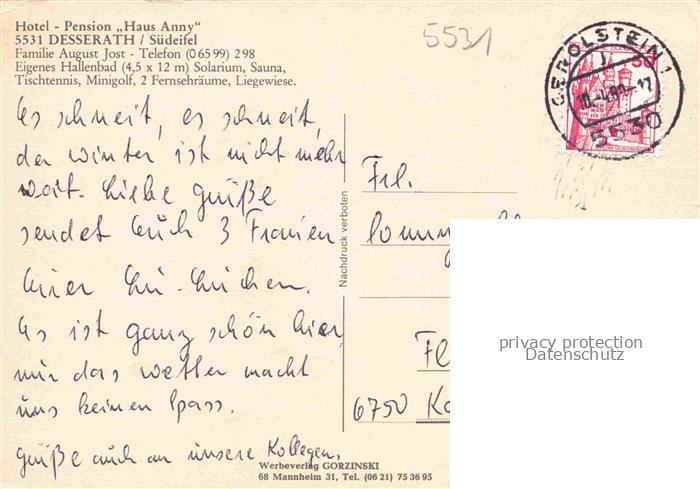 Hotel - Pension „Haus Anny“
5531 DESSERATH / Südeifel
Familie August Jost - Telefon (0 65 99) 298
Eigenes Hallenbad (4,5 x 12 m) Solarium, Sauna,
Tischtennis, Minigolf, 2 Fernsehräume, Liegewiese.
5531
GEROLSTEIN 1
5530
50
Es schneit, es schneit,
der winter ist nicht mehr
weit. Liebe grüße
sendet Euch 3 Frauen
Eurer
Es ist ganz schön hier,
nur das wetter macht
uns keinen Spass.
grüße auch an unsere Kollegen.
Nachdruck verboten
Frl.
6750
privacy protection
Datenschutz
Werbeverlag GORZINSKI
68 Mannheim 31, Tel. (06 21) 75 36 95